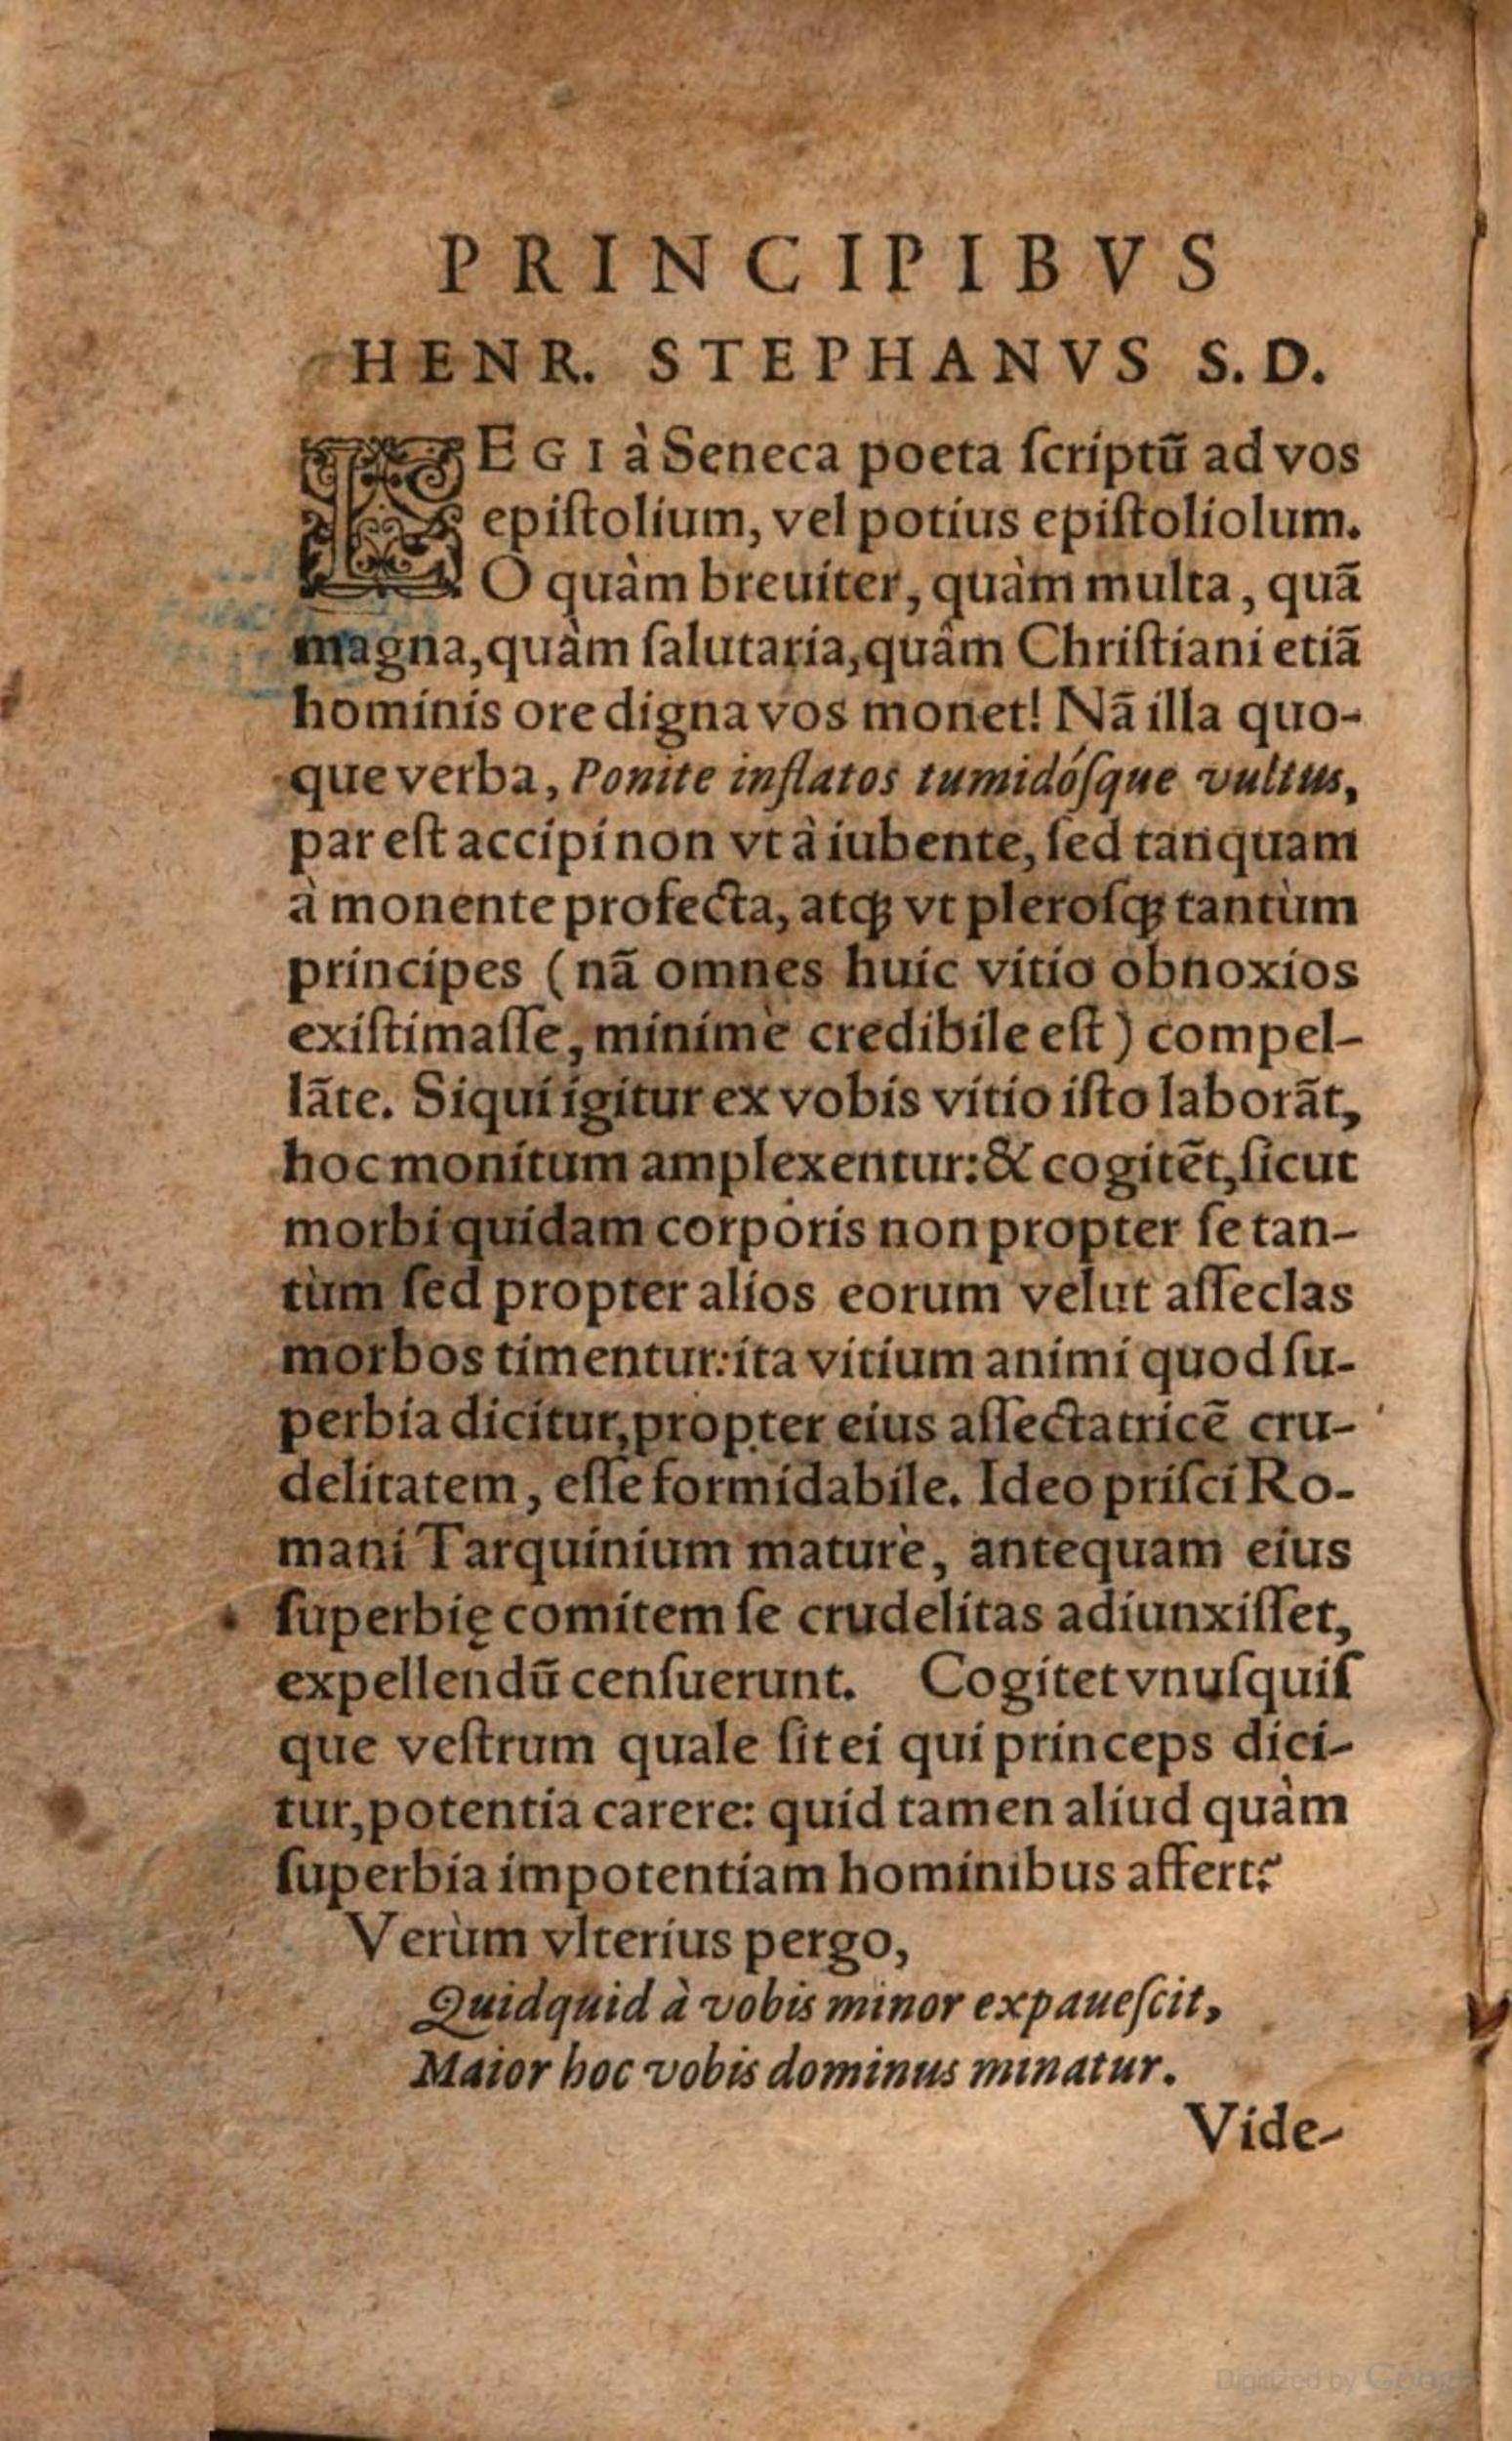 PRINCIPIBVS
HENR. STEPHANVS S. D.
LEGI à Seneca poeta ſcriptũ ad vos
epiſtolium, vel potius epiſtoliolum.
O quàm breuiter, quàm multa, quã
magna, quàm ſalutaria, quàm Chriſtiani etiã
hominis ore digna vos monet! Nã illa quo-
que verba, Ponite inflatos tumidóſque vultus,
par eſt accipi non vt à iubente, ſed tanquam
à monente profecta, atq; vt pleroſq; tantùm
principes (nã omnes huic vitio obnoxios
exiſtimaſſe, minimè credibile eſt) compel-
lãte. Siqui igitur ex vobis vitio iſto laborãt,
hoc monitum amplexentur: & cogitẽt, ſicut
morbi quidam corporis non propter ſe tan-
tùm ſed propter alios eorum velut aſſeclas
morbos timentur: ita vitium animi quod ſu-
perbia dicitur, propter eius aſſectatricẽ cru-
delitatem, eſſe formidabile. Ideo priſci Ro-
mani Tarquinium maturè, antequam eius
ſuperbię comitem ſe crudelitas adiunxiſſet,
expellendũ cenſuerunt. Cogitet vnuſquiſ
que veſtrum quale ſit ei qui princeps dici-
tur, potentia carere: quid tamen aliud quàm
ſuperbia impotentiam hominibus affert?
Verùm vlterius pergo,
Quidquid à vobis minor expaueſcit,
Maior hoc vobis dominus minatur.
Vide-
Digitized by Google